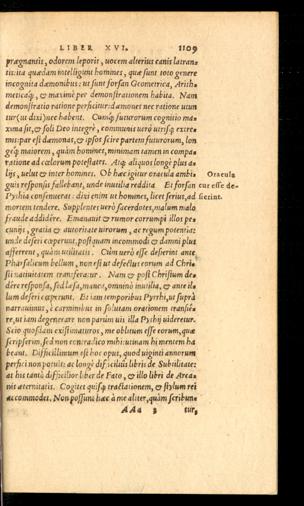 LIBER XVI. 1109
prægnantis, odorem leporis, uocem alterius canis latran-
tis: ita quædam intelligunt homines, quæ sunt toto genere
incognita dæmonibus: ut sunt forsan Geometrica, Arith-
meticaq́;, & maximè per demonstrationem habita. Nam
demonstratio ratione perficitur: dæmones nec ratione utun
tur (ut dixi) nec habent. Cumq́; futurorum cognitio ma-
xima sit, & soli Deo integrè, communis uerò utrisq́; extre-
mis: par est dæmonas, & ipsos scire partem futurorum, lon
geq́; maiorem, quàm homines, minimam tamen in compa-
ratione ad cœlorum potestates. Atq́; aliquos longè plus a-
lijs, uelut & inter homines. Ob hæc igitur oracula ambi
guis responsis fallebant, unde inutilia reddita. Et forsan
Pythia consenuerat: dixi enim ut homines, licet serius, ad
mortem tendere. Supplentes uerò sacerdotes, malum malo
fraude addidêre. Emanauit & rumor corrumpi illos pe-
cunijs, gratia & autoritate uirorum, ac regum potentia:
unde deseri cœperunt, postquam incommodi & damni plus
afferrent, quàm utilitatis. Cùm uerò esse desierint ante
Pharsalicum bellum, non est ut defectus eorum ad Chri-
sti natiuitatem transferatur. Nam & post Christum de-
dêre responsa, sed falsa, manca, omnino inutilia, & ante il-
lum deseri cœperunt. Etiam temporibus Pyrrhi, ut suprà
narrauimus, è carminibus in solutam orationem transiê-
re, ut iam degenerare non parum uis illa Pythij uideretur.
Scio quosdam existimaturos, me oblitum esse eorum, quæ
scripserim, sed non contradico mihi: utinam hi mentem ha
beant. Difficillimum est hoc opus, quod uiginti annorum
perfici non potuit: ac longè difficilius libris de Subtilitate:
at his tantò difficilior liber de Fato, & illo libri de Arca-
nis æternitatis. Cogitet quisq́; tractationem, & stylum rei
accommodet. Non possunt hæc à me aliter, quàm scribun-
AAa 3 tur,
Oracula
cur esse de-
sierint.